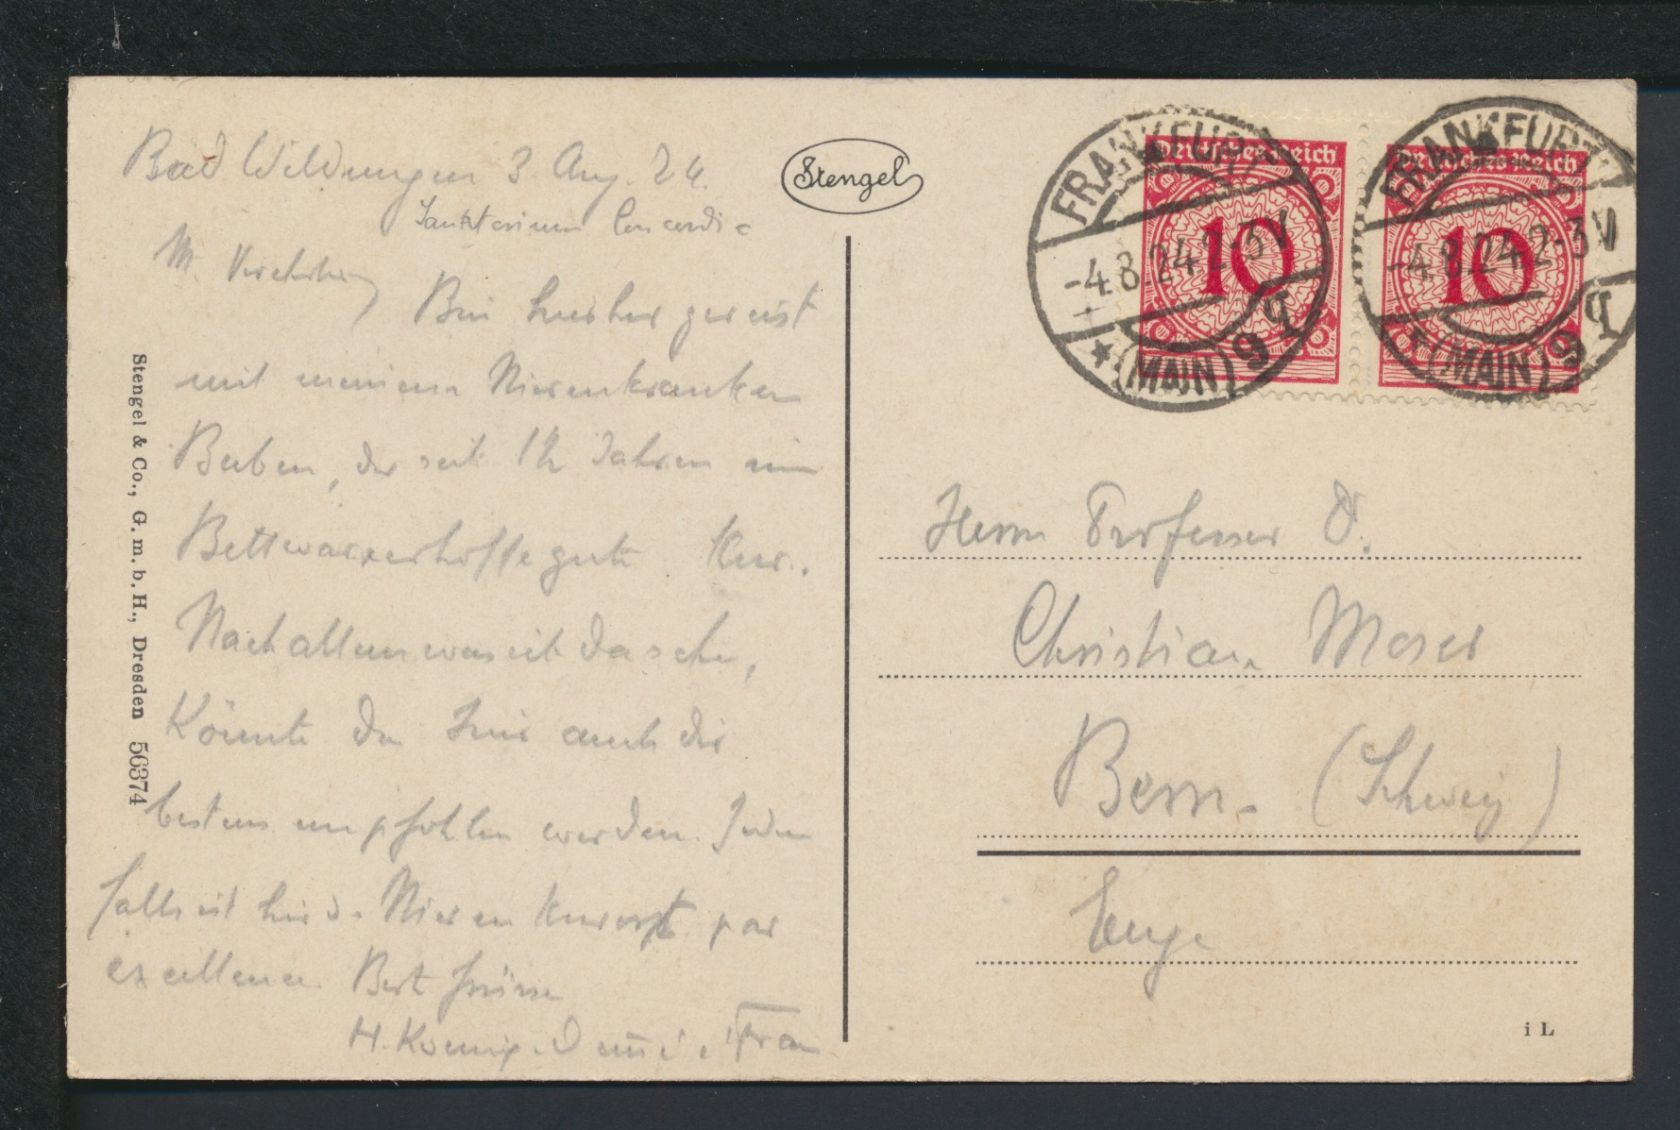 Bad Wildungen 3. Aug. 24.
Sanatorium Concordia
M. Verehrter
Bin hierher gereist
mit meinem Nierenkranken
Buben, der seit 1½ Jahren im
Bett war, er hoffe gute Kur.
Nach allem was ich da sehe,
Könnte Du hier auch dir
bestens empfohlen werden. Jeden
falls ist hier d. Nieren Kurort par
excellence. Best Grüsse
H. Koenig. D
Frau
Stengel & Co., G. m. b. H., Dresden 56374
Stengel
Deutsches Reich
10
Deutsches Reich
10
FRANKFURT
-4.8.24.2-3V
★ (MAIN) 9 q
FRANKFURT
-4.8.24.2-3V
(MAIN) 9 q
Herrn Professor D.
Christian Moser
Bern. (Schweiz)
Enge
i L